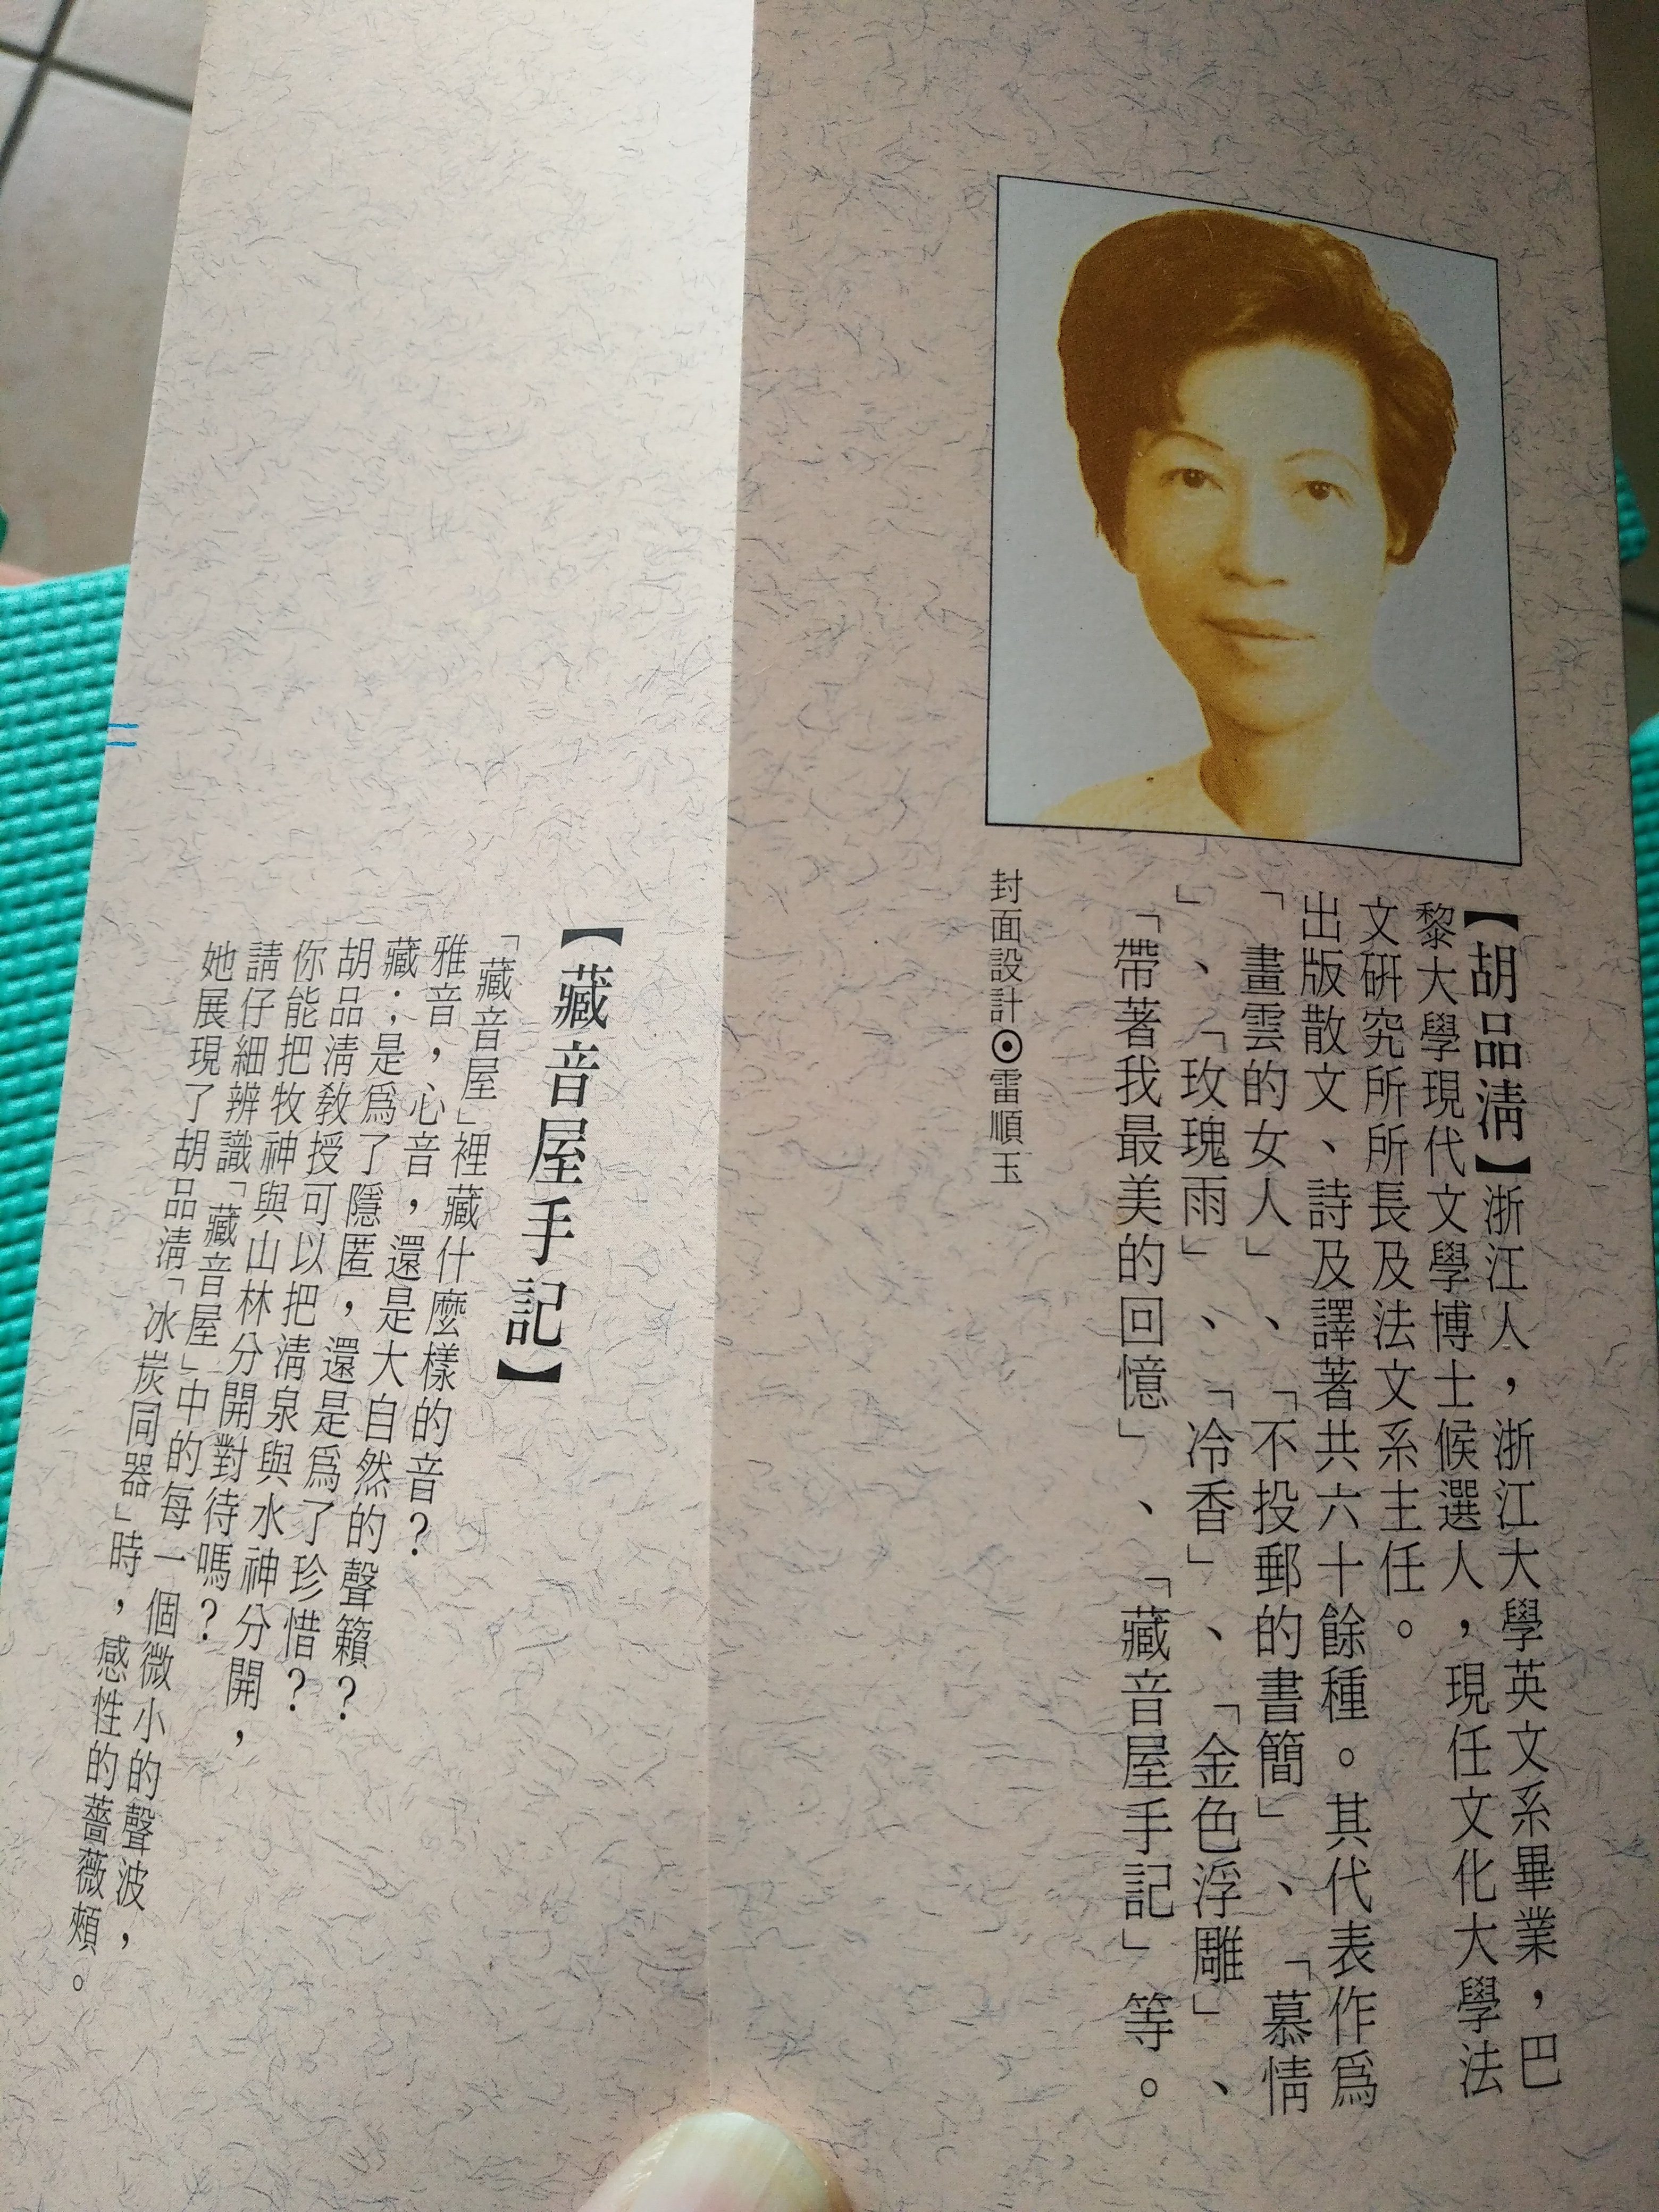 【胡品淸】浙江人，浙江大學英文系畢業，巴
黎大學現代文學博士候選人，現任文化大學法
文硏究所所長及法文系主任。
出版散文、詩及譯著共六十餘種。其代表作爲
「畫雲的女人」、「不投郵的書簡」、「慕情
」、「玫瑰雨」、「冷香」、「金色浮雕」、
「帶著我最美的回憶」、「藏音屋手記」等。
封面設計⊙雷順玉
【藏音屋手記】
「藏音屋」裡藏什麼樣的音？
雅音，心音，還是大自然的聲籟？
藏；是爲了隱匿，還是爲了珍惜？
胡品淸敎授可以把淸泉與水神分開，
你能把牧神與山林分開對待嗎？
請仔細辨識「藏音屋」中的每一個微小的聲波，
她展現了胡品淸「冰炭同器」時，感性的薔薇頰。